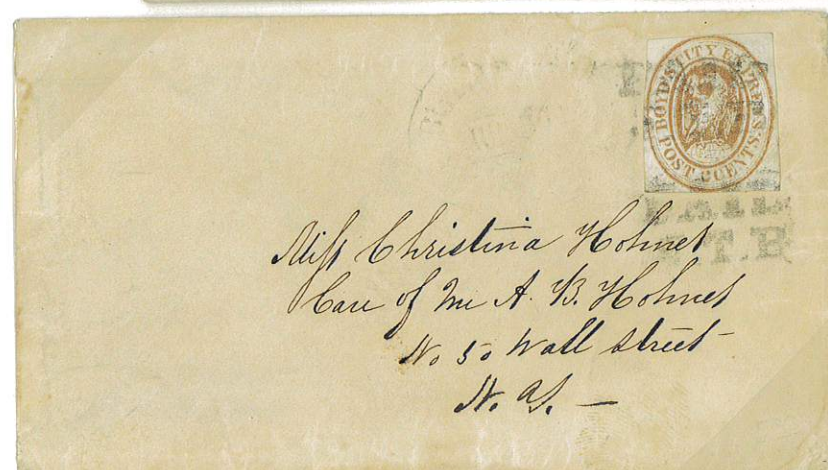 BOYD'S CITY EXPRESS
POST 2 CENTS.
Miss Christina Holmes
Care of Mr A. B. Holmes
No 50 Wall Street
N. Y. —